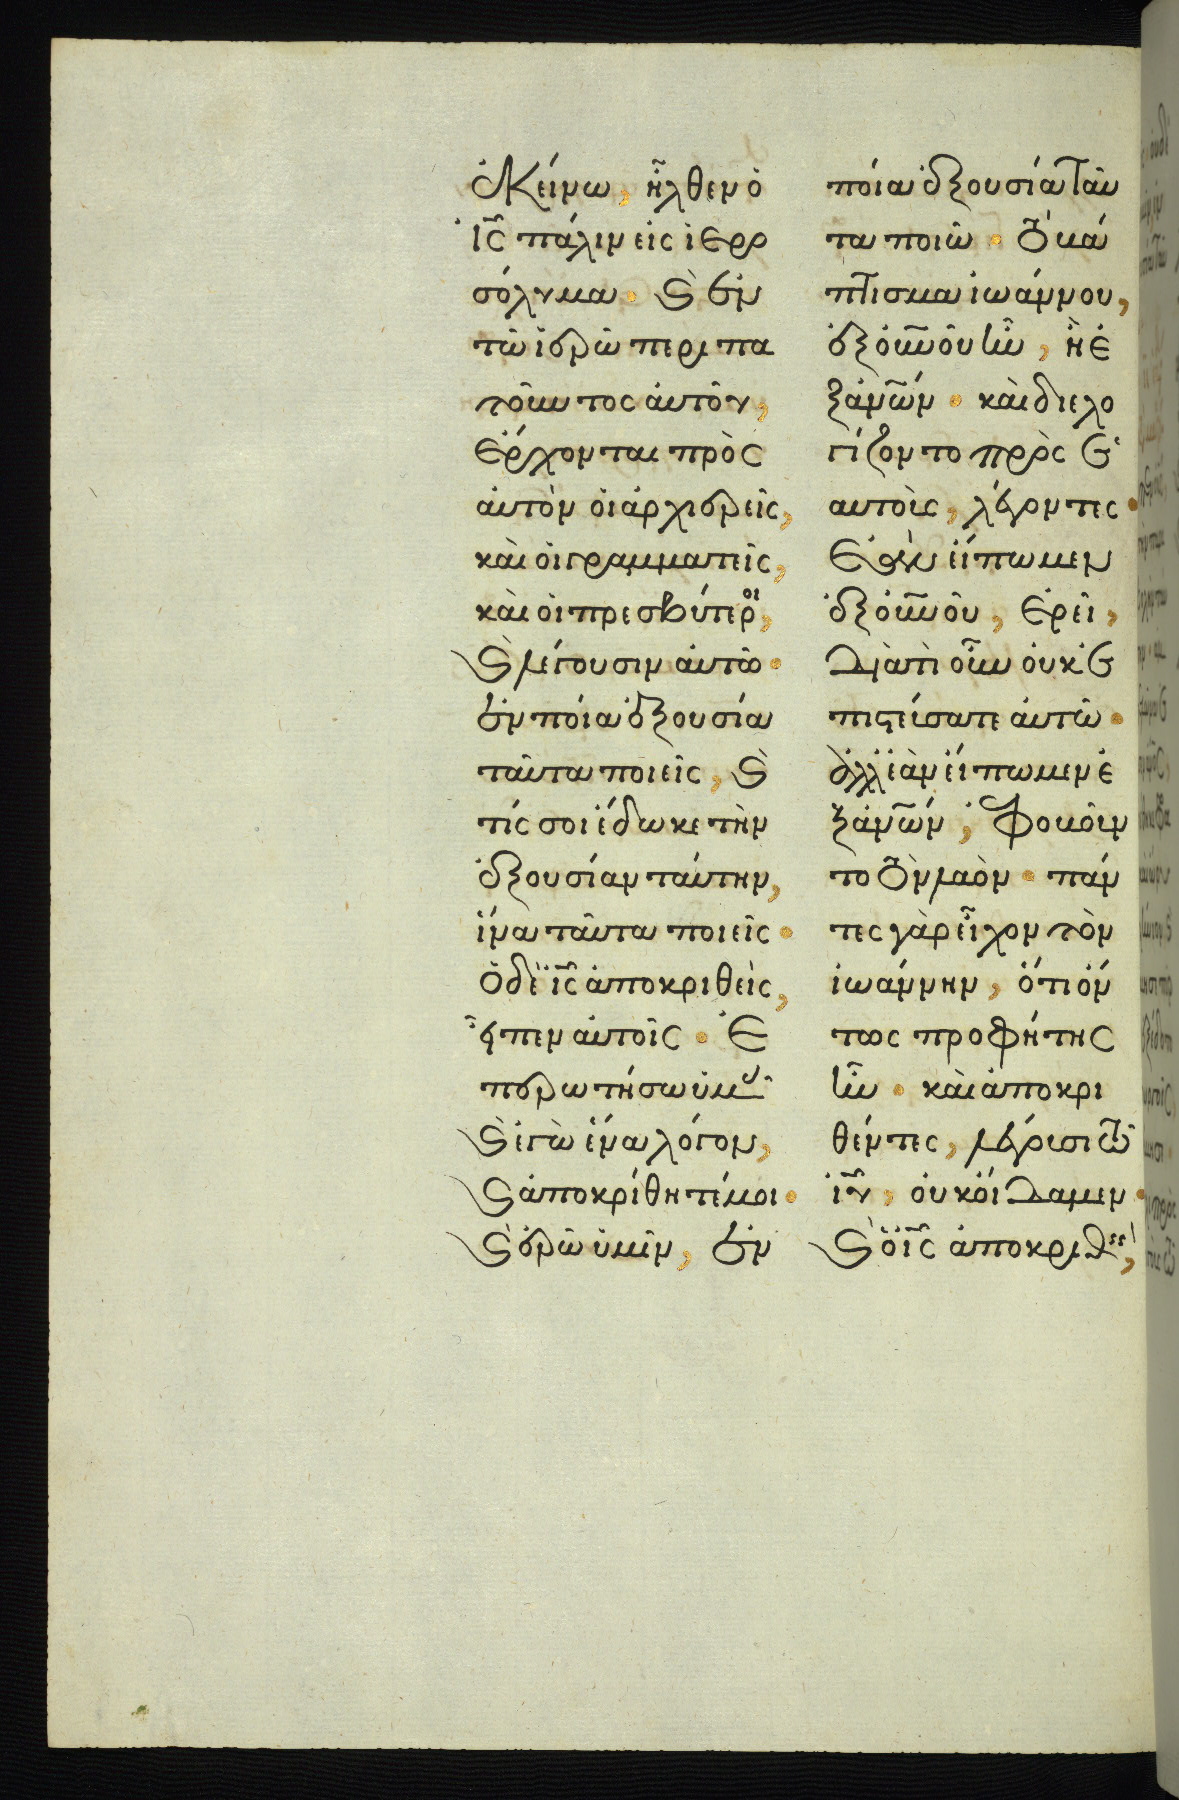 ἐκείνω, ἦλθεν ὁ
ἰς πάλιν εἰς ἱερο
σόλυμα. καὶ ἐν
τῶ ἱερῶ περιπα
τοῦντος αὐτοῦ,
ἔρχονται πρὸς
αὐτὸν οἱ ἀρχιερεῖς,
καὶ οἱ γραμματεῖς,
καὶ οἱ πρεσβύτεροι,
καὶ λέγουσιν αὐτῶ.
ἐν ποία ἐξουσία
ταῦτα ποιεῖς, καὶ
τίς σοι ἔδωκε τὴν
ἐξουσίαν ταύτην,
ἵνα ταῦτα ποιεῖς.
ὁ δὲ ἰς ἀποκριθεὶς,
εἶπεν αὐτοῖς. Ἐ
περωτήσω ὑμᾶς
καὶ ἐγὼ ἕνα λόγον,
καὶ ἀποκρίθητέ μοι.
καὶ ἐρῶ ὑμῖν, ἐν
ποία ἐξουσία ταῦ
τα ποιῶ. τὸ βά
πτισμα ἰωάννου,
ἐξ οὐνοῦ ἦν, ἢ ἐ
ξ ἀνων. καὶ διελο
γίζοντο πρὸς ἑ
αυτοὺς, λέγοντες.
Ἐὰν εἴπωμεν
ἐξ οὐνοῦ, ἐρεῖ,
Διατὶ οὖν οὐκ ἐ
πιστεύσατε αὐτῶ.
ἀλλ' ἐὰν εἴπωμεν ἐ
ξ ἀνων, ἐφοβοῦν
το τὸν λαὸν. πάν
τες γὰρ εἶχον τὸν
ἰωάννην, ὅτι ὄν
τως προφήτης
ἦν. καὶ ἀποκρι
θέντες, λέγουσι τῶ
ἰυ, οὐκ οἴδαμεν.
καὶ ὁ ἰς ἀποκριθεὶς,